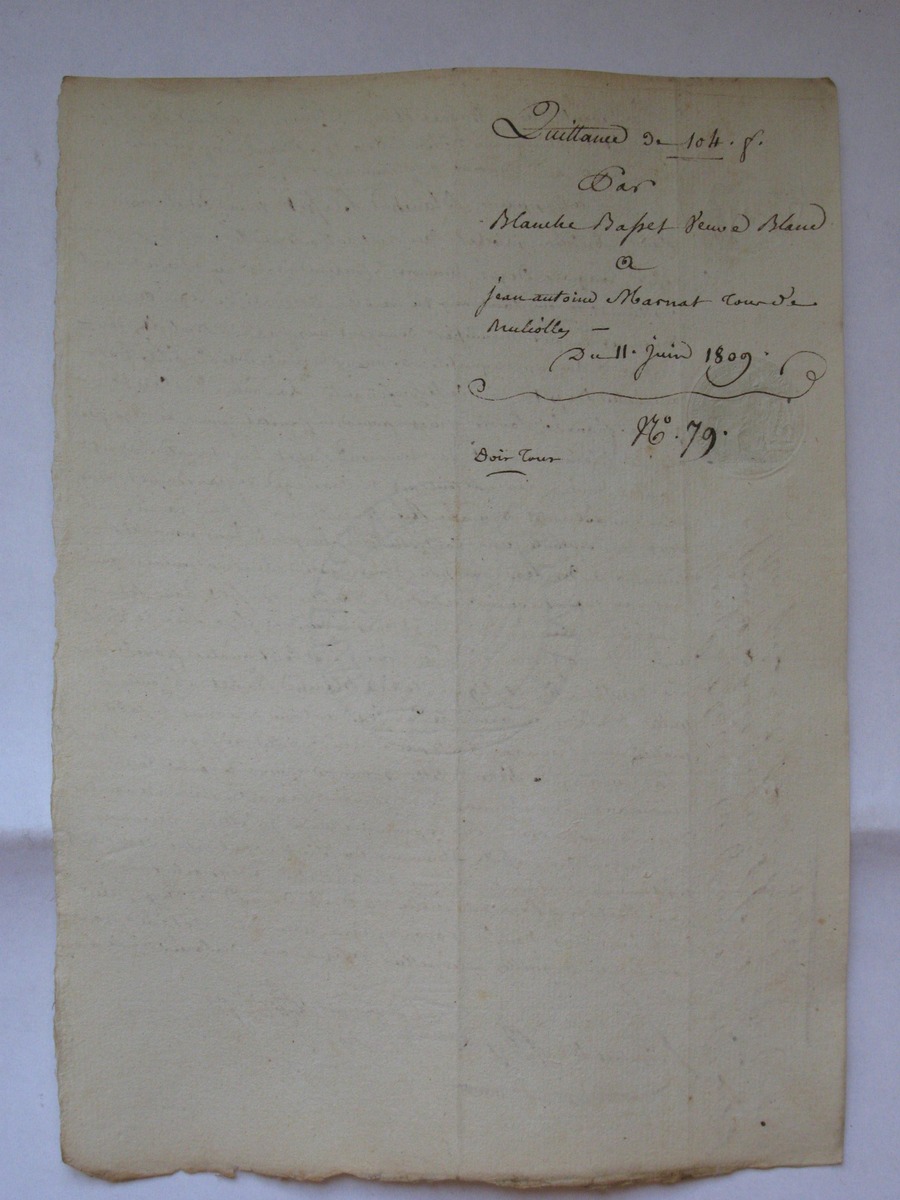 Quittance de 104. f.
Par
Blanche Basset Veuve Blanc
a
jean antoine Marnat tour de
Du 11. juin 1809.
N.º 79.
Doit tour